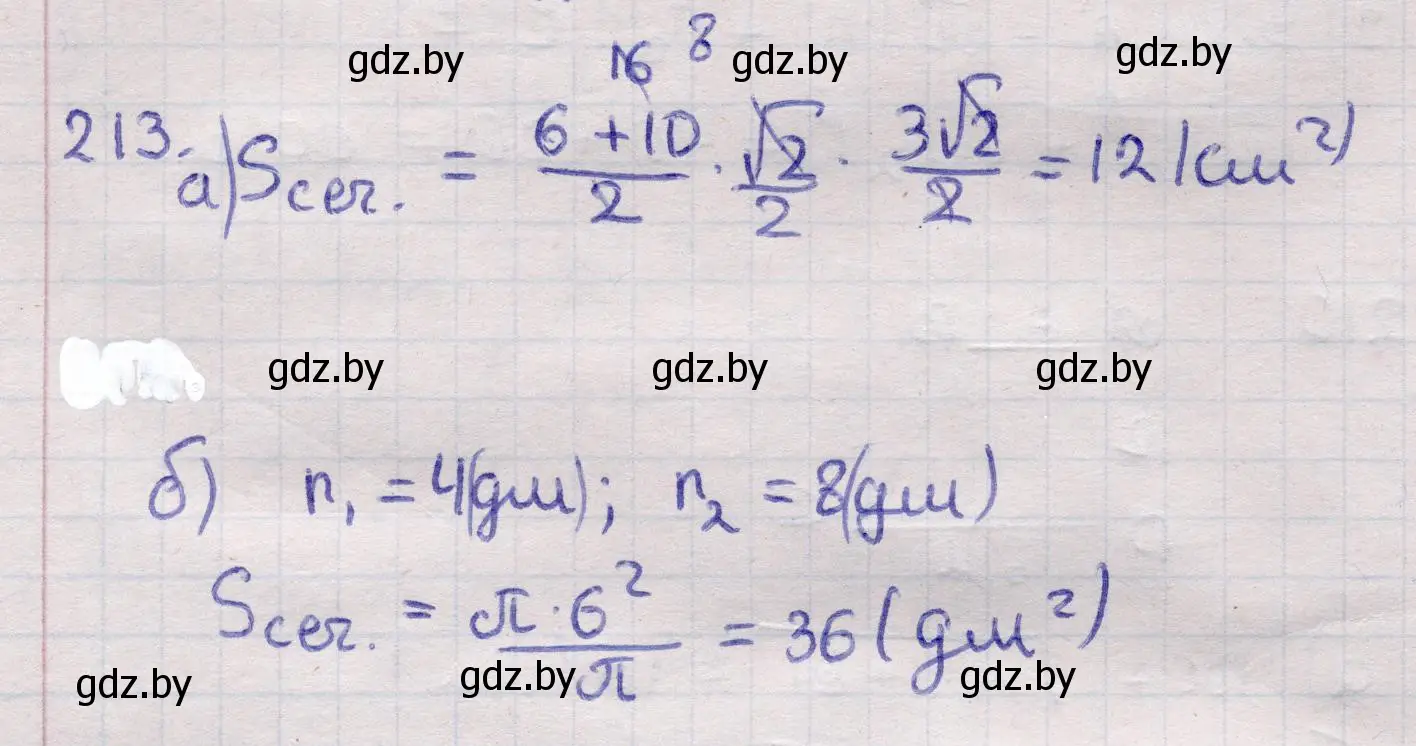 gdz.by gdz.by gdz.by
16 8
213. а) Sсеч. = (6 + 10)/2 · √2/2 · 3√2/2 = 12 (см²)
gdz.by gdz.by gdz.by
б) r₁ = 4(дм); r₂ = 8(дм)
Sсеч. = π · 6²/π = 36 (дм²)
gdz.by gdz.by gdz.by